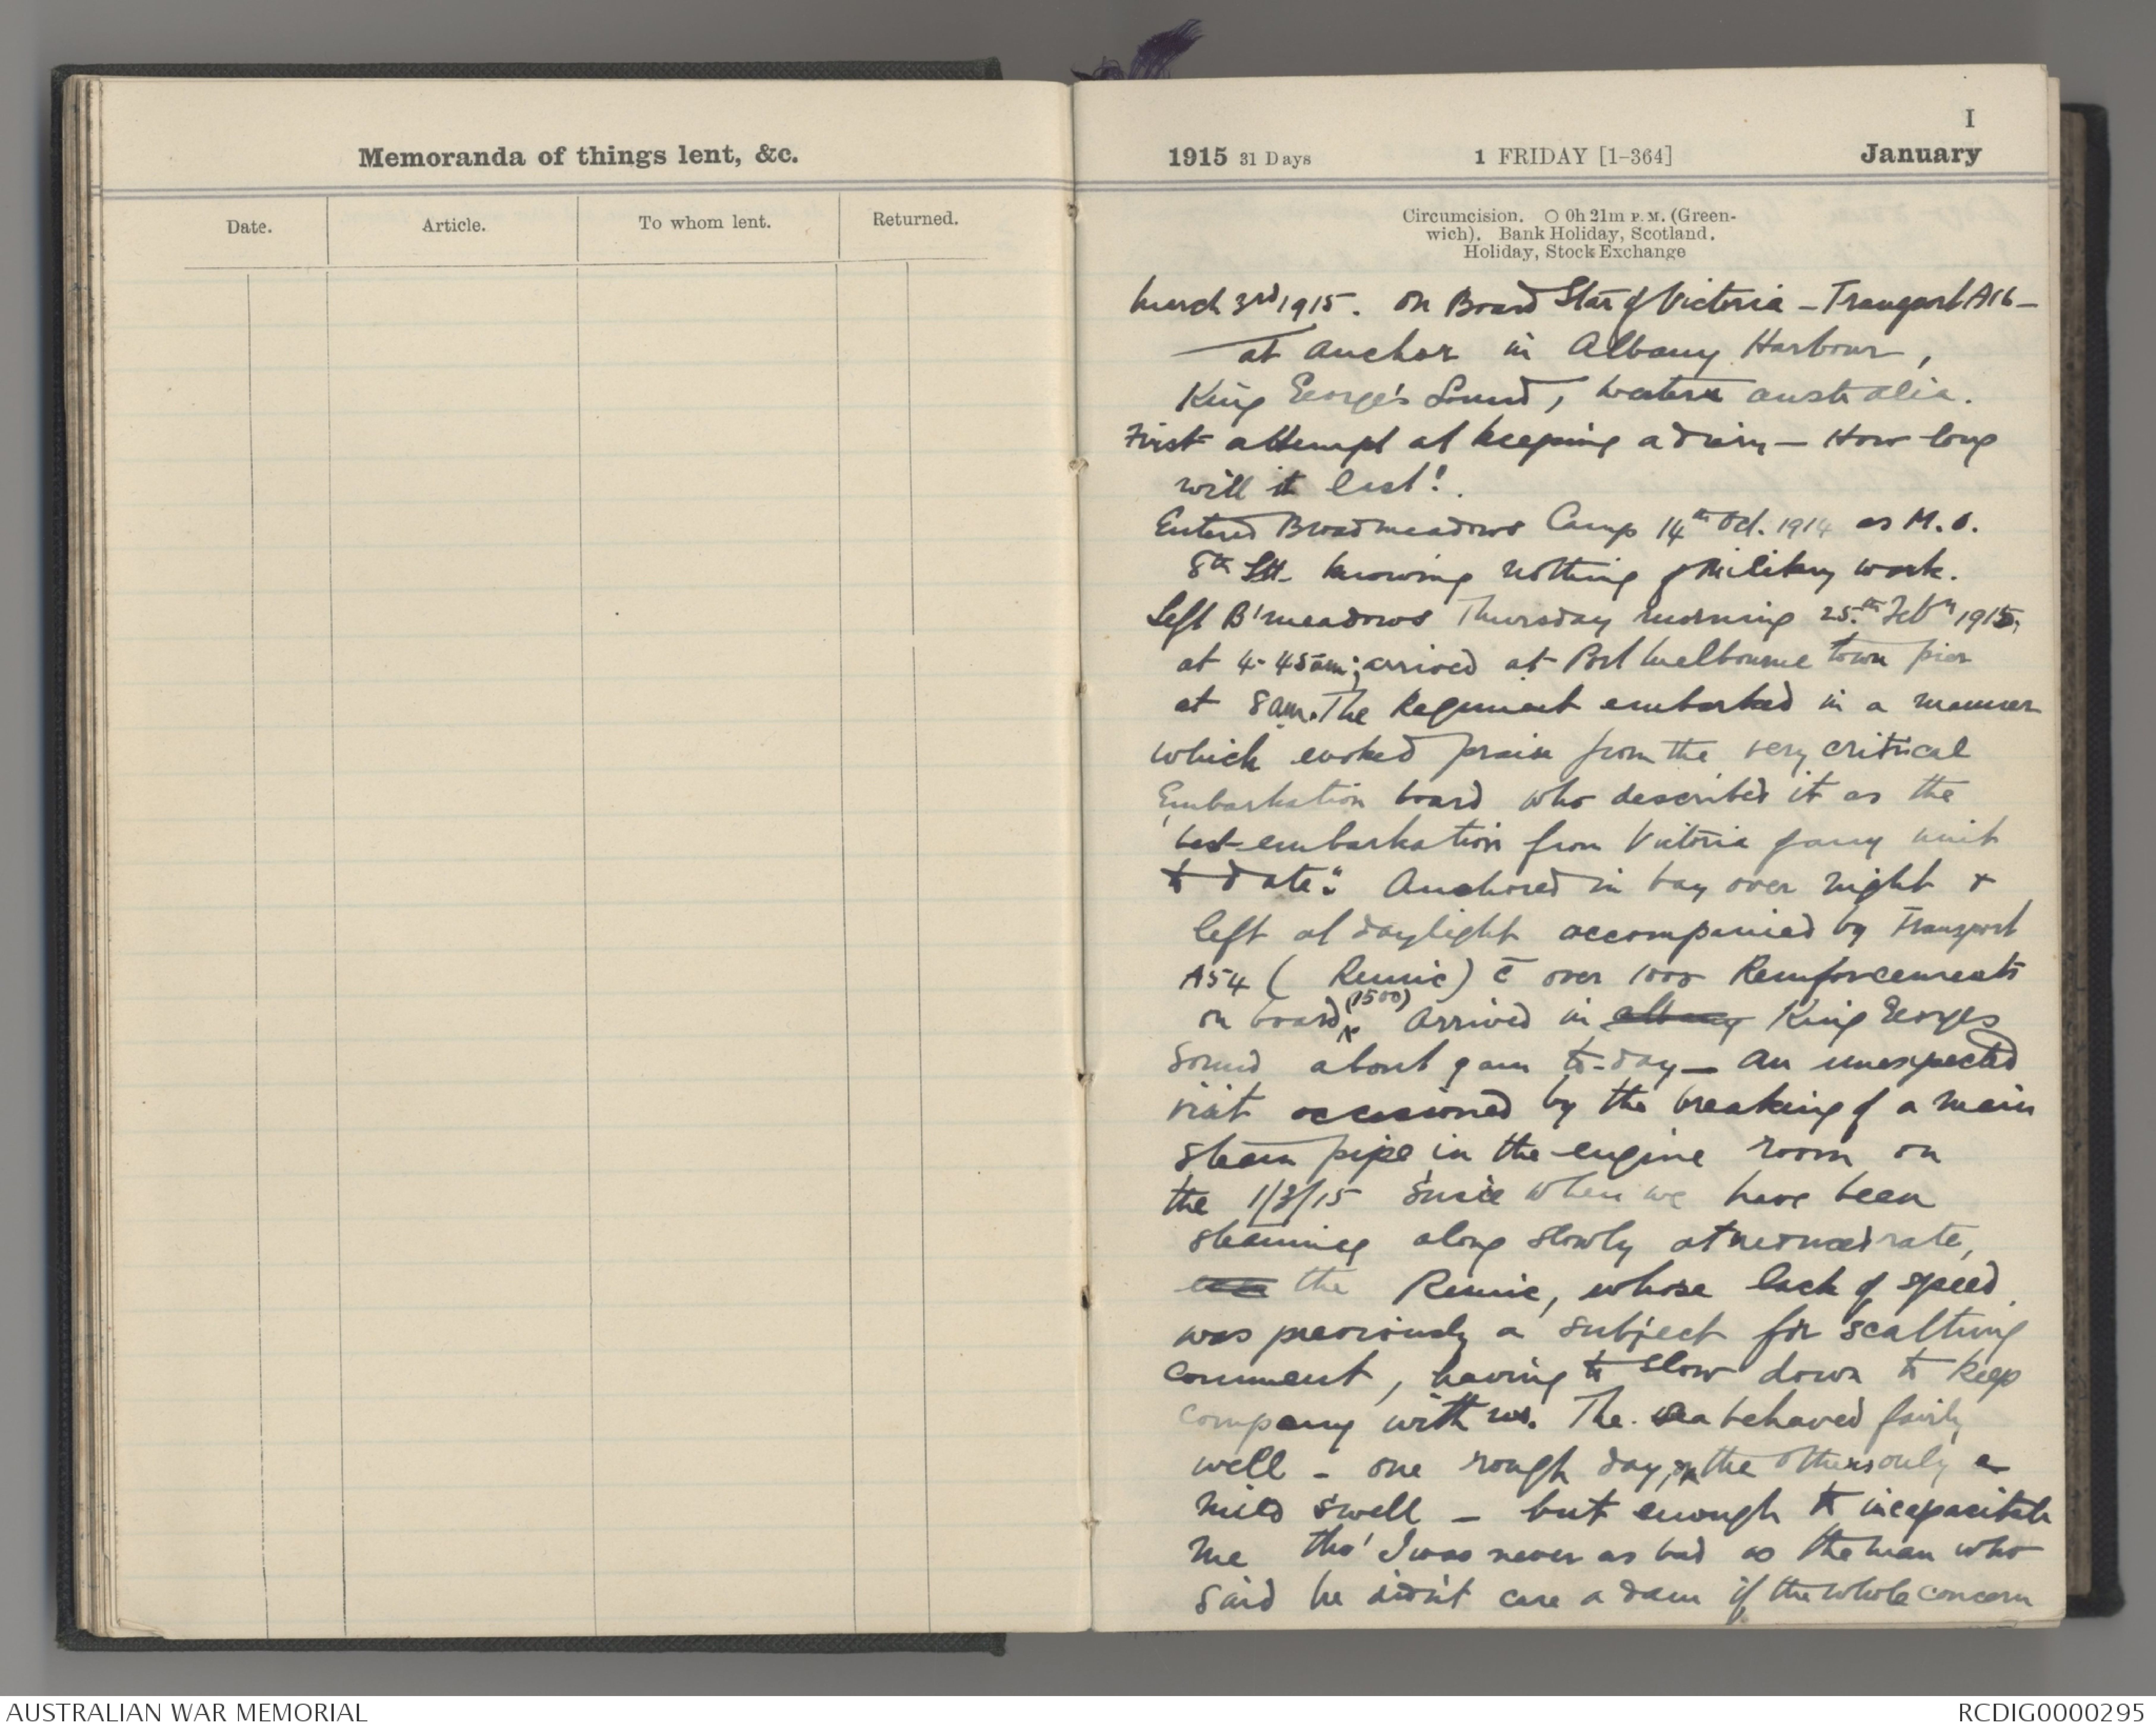 Memoranda of things lent, &c.
Date. Article. To whom lent. Returned.
I
1915 31 Days 1 FRIDAY [1-364] January
Circumcision. ○ 0h 21m P.M. (Green-
wich). Bank Holiday, Scotland.
Holiday, Stock Exchange
March 3rd 1915. On Board Star of Victoria - Transport A16 -
at anchor in Albany Harbour,
King George's Sound, Western Australia.
First attempt at keeping a diary - How long
will it last!.
Entered Broadmeadows Camp 14th Oct. 1914 as M.O.
8th LH. knowing nothing of Military work.
Left B'meadows Thursday morning 25th Feby 1915,
at 4-45am; arrived at Port Melbourne town pier
at 8am. The Regiment embarked in a manner
which evoked praise from the very critical
Embarkation board who described it as the
"best embarkation from Victoria of any unit
to date". Anchored in bay over night &
left at daylight accompanied by Transport
A54 ( Runic) c̄ over 1000 Reinforcements
on board. (1500) Arrived in Albany King Georges
Sound about 9 am to-day - An unexpected
visit occasioned by the breaking of a main
steam pipe in the engine room on
the 1/3/15 since when we have been
steaming along slowly at reduced rate,
the Runic, whose lack of speed
was previously a subject for scathing
comment, having to slow down to keep
company with us. The sea behaved fairly
well - one rough day, the others only a
mild swell - but enough to incapacitate
me tho' I was never as bad as the man who
said he didn't care a dam if the whole concern
AUSTRALIAN WAR MEMORIAL
RCDIG0000295